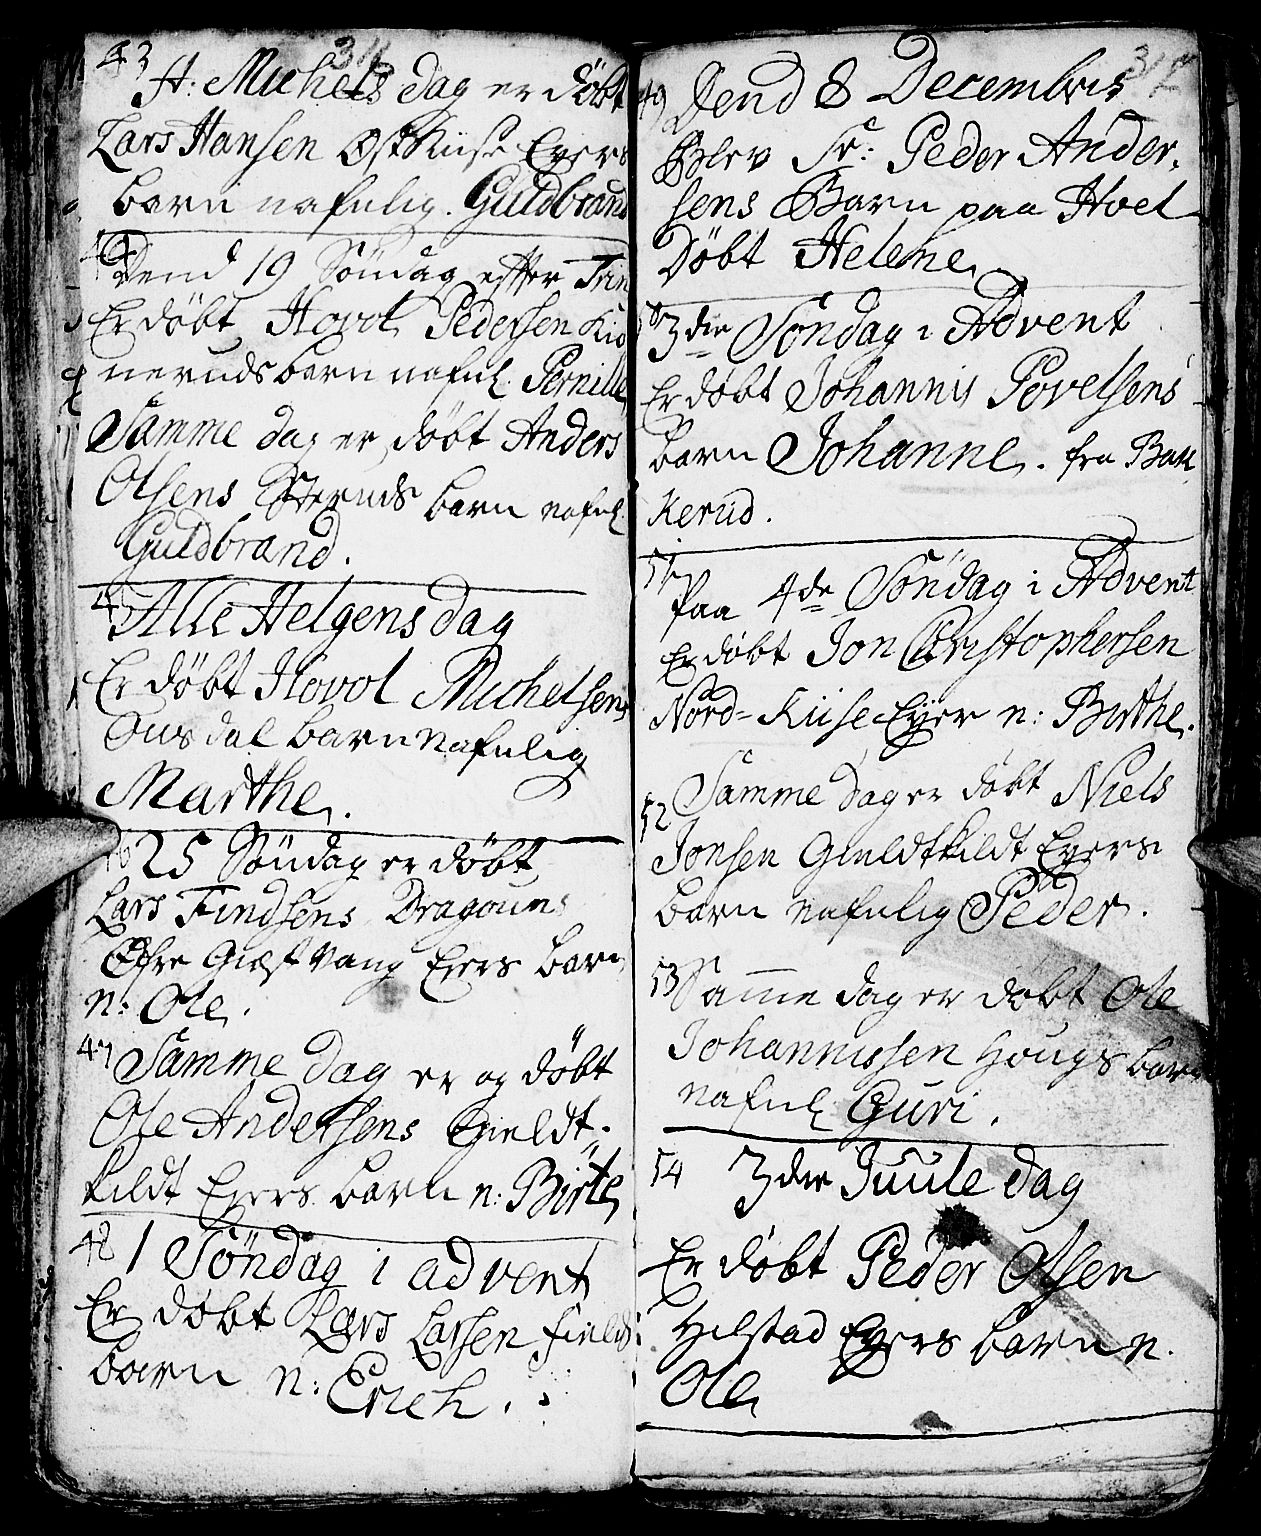 316
43
St: Michels dag er døbt
Lars Hansen Øst Kiise Eyers
barn nafnlig. Guldbrand
44
Dend 19 Söndag effter Trin
Er döbt Hovol Pedersen Kio
neruds barn nafnl. Pernille
Samme dag er döbt Anders
Olsens Steruds barn nafnl
Guldbrand.
45
Alle Helgens dag
Er döbt Hovol Michelsens
Ousdal barn nafnlig
Marthe.
46 25 Söndag er döbt
Lars Findsens Dragouns
Öfre Giæstvang Eyers barn
n: Ole.
47 Samme dag er og döbt
Ole Andersens Gieldt-
kildt Eyers barn n: Birte
48 1 Söndag i advent
Er döbt Lars Larsen field
barn n: Erich.
317
49 Dend 8 Decembris
Blev Sr: Peder Ander-
sens Barn paa Hvel
Döbt Helene
50 3die Söndag i Advent
Er döbt Johannis Povelsens
barn Johanne. fra Bak
kerud.
51 Paa 4de Söndag i Advent
Er döbt Jon Christophersen
Nord-Kiise Eyer n: Birthe.
52 Samme dag er döbt Niels
Jonsen Gieldtkildt Eyers
barn nafnlig Peder.
53 Samme dag er döbt Ole
Johannissen Hougs barn
nafnl Guri.
54 3die Juule dag
Er döbt Peder Olsen
Hilstad Eyers barn n.
Ole